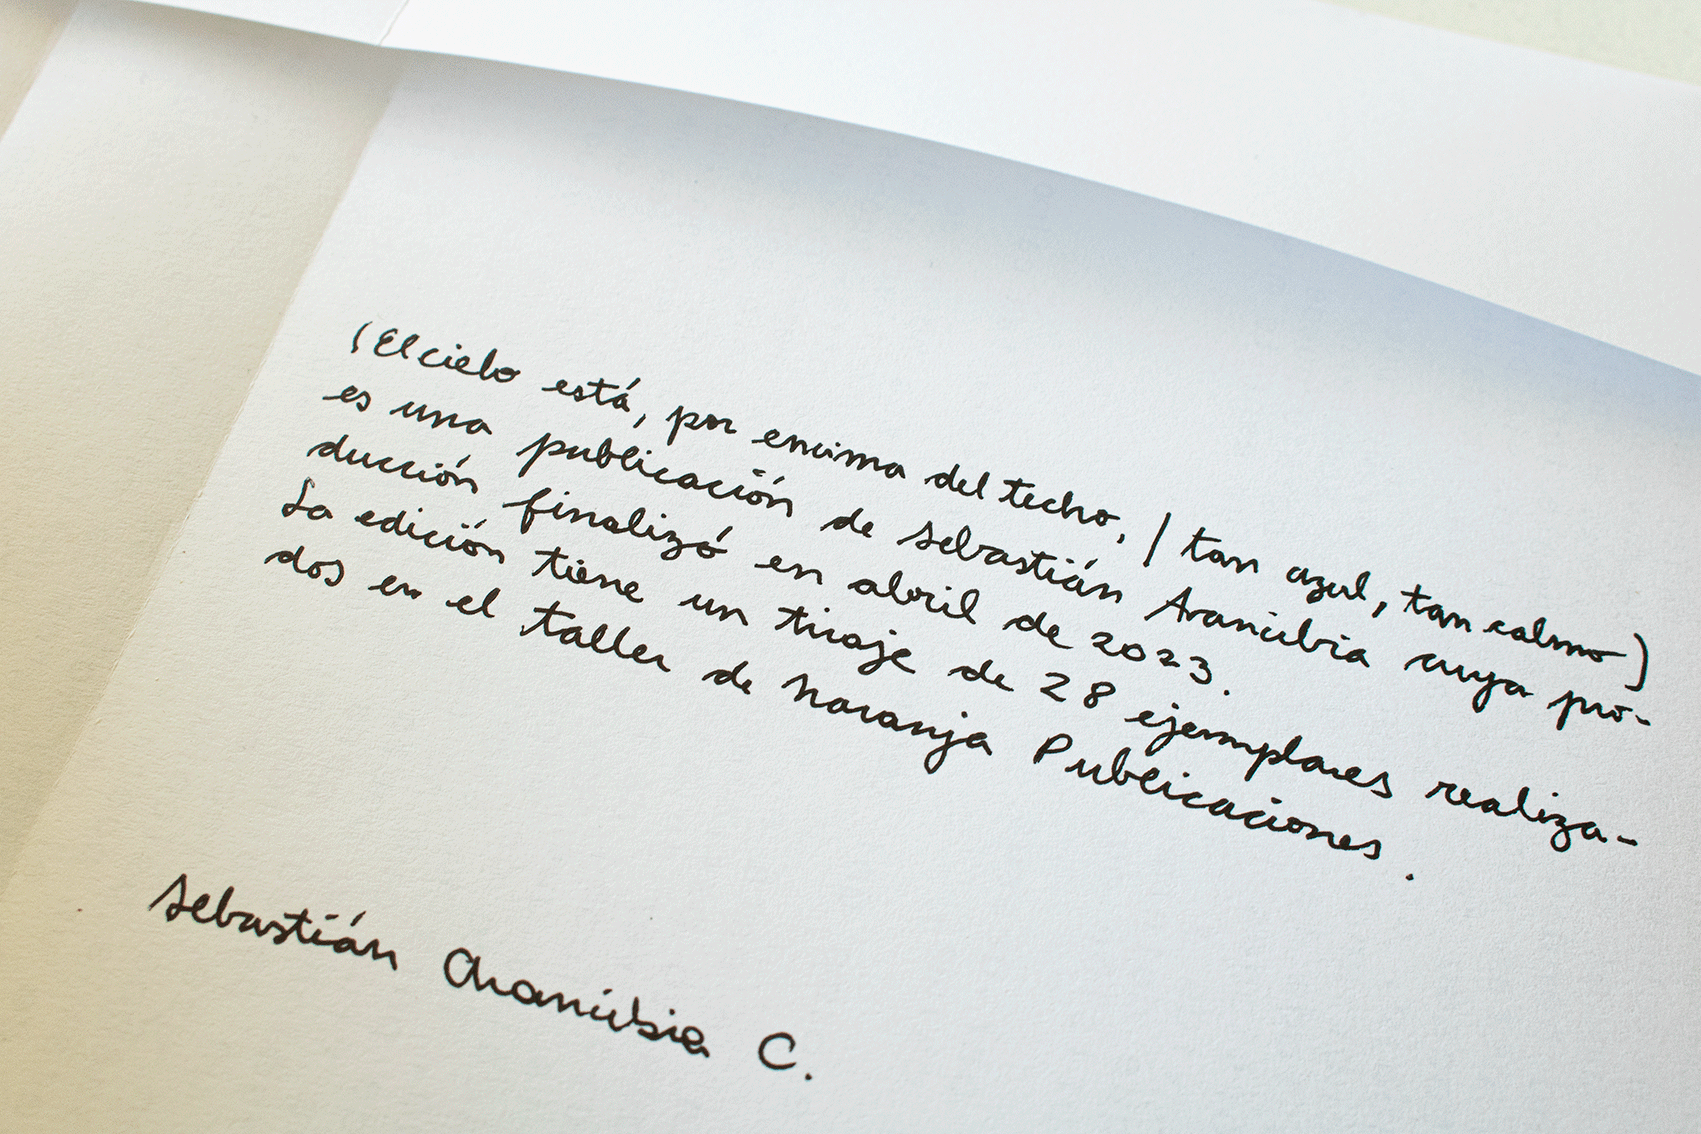 (El cielo está, por encima del techo, / tan azul, tan calmo)
es una publicación de Sebastián Arancibia cuya pro-
ducción finalizó en abril de 2023.
La edición tiene un tiraje de 28 ejemplares realiza-
dos en el taller de Naranja Publicaciones.
Sebastián Arancibia C.